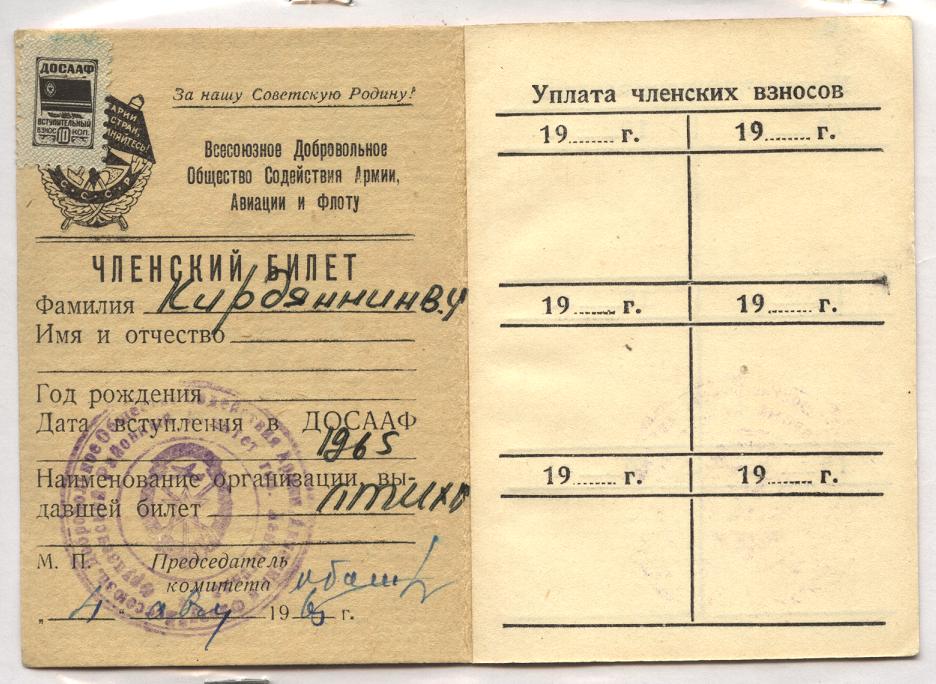 ДОСААФ
ВСТУПИТЕЛЬНЫЙ
ВЗНОС 10 КОП.
С.С.С.Р.
За нашу Советскую Родину!
Всесоюзное Добровольное
Общество Содействия Армии,
Авиации и Флоту
ЧЛЕНСКИЙ БИЛЕТ
Фамилия
Имя и отчество
Год рождения
Дата вступления в ДОСААФ
1965
Наименование организации, вы-
давшей билет
М. П. Председатель
комитета
„4“ авг 1965 г.
Уплата членских взносов
19...... г. 19...... г.
19...... г. 19...... г.
19...... г. 19...... г.